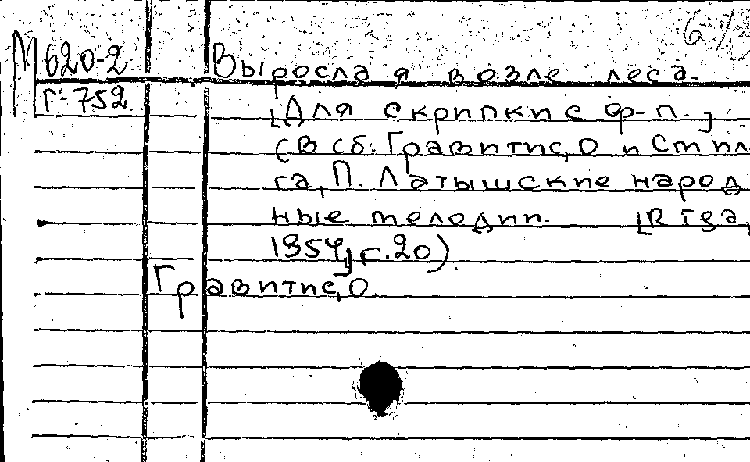 М 620-2
Г-752
Выросла я возле леса.
[Для скрипки с ф-п.]
(В сб: Гравитис, О и Стипл
га, П. Латышские народ
ные мелодии. [Riga,
1954] с. 20).
Гравитис, О